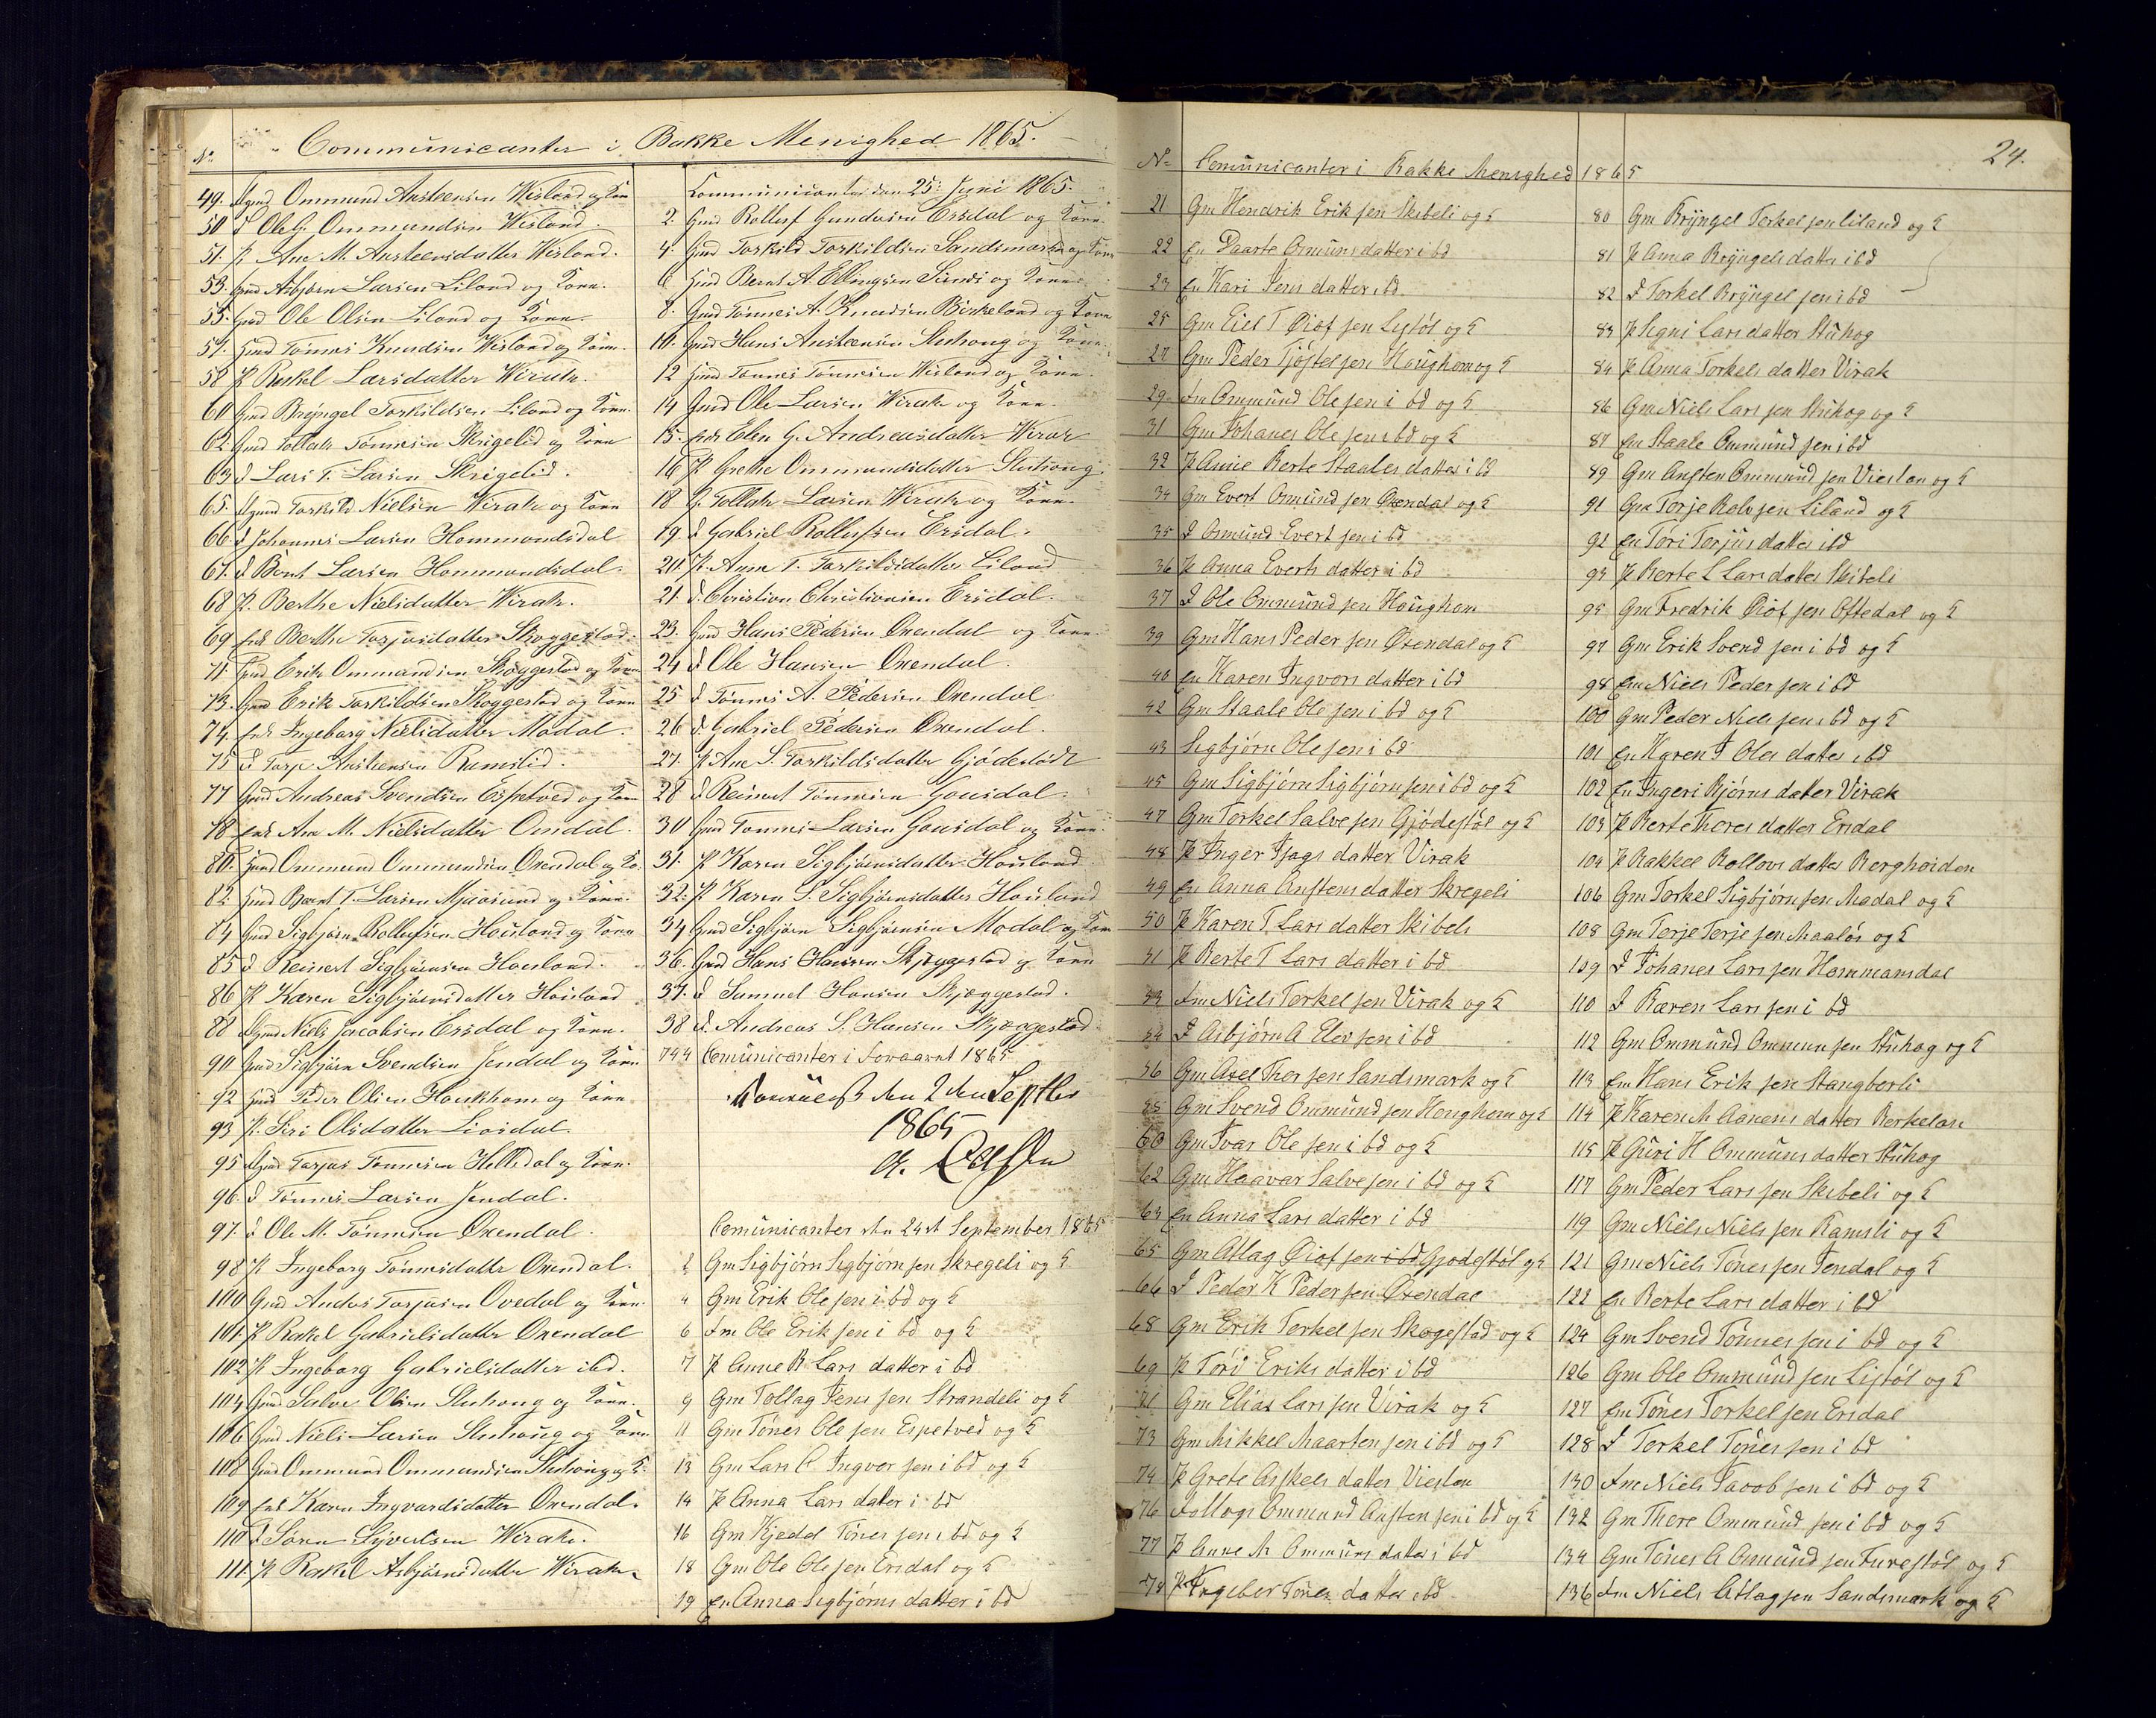 No Communicanter i Bakke Menighed 1865.
49. Gmd Ommund Ansteensen Wisland og Kone
50 d Ole G. Ommundsen Wisland.
51. p Ane M. Ansteensdatter Wisland.
53. Gmd Asbjørn Larsen Liland og Kone.
55. Gmd Ole Olsen Liland og Kone.
57. Gmd Tønnes Knudsen Wisland og Kone.
58 p Rakel Larsdatter Wirak.
60 Gmd Brÿngel Torkildsen Liland og Kone.
62. Gmd Tollak Tønnesen Skrigelid og Kone
63 d Lars T. Larsen Skrigelid.
65. Gmd Torkild Nielsen Wirak og Kone
66. d Johannes Larsen Hommundsdal
67. d Bent Larsen Hommundsdal.
68 p. Berthe Nielsdatter Wirak.
69 Enke Berthe Torjusdatter Skoggestad.
71. Gmd Erik Ommundsen Skoggestad og Kone
73. Gmd Erik Torkildsen Skoggestad og Kone
74. Enke Ingeborg Nielsdatter Modal.
75 d Torje Ansteensen Ramslid.
77 Gmd Andreas Svendsen Espetved og Kone
78 Enke Ane M. Nielsdatter Omdal.
80. Gmd Ommund Ommundsen Oxendal og Ko.
82. Gmd Berent T. Larsen Mjuosund og Kone.
84 Gmd Sigbjørn Rollufsen Housland og Kone
85 d Reinert Sigbjørnsen Housland.
86 p Karen Sigbjørnsdatter Housland
88 Gmd Niels Jacobsen Ersdal og Kone.
90 Gmd Sigbjørn Svendsen Jendal og Kone
92 Gmd Peder Olsen Houkhom og Kone
93 p. Siri Olsdatter Liosdal.
95 Gmd Torjus Tønnesen Helledal og Kone.
96. d Tønnes Larsen Jendal.
97. d Ole M. Tønnesen Oxendal.
98 p Ingeborg Tønnesdatter Oxendal.
100 Gmd Andas Torjusen Ovedal og Kone.
101. p Rakel Gabrielsdatter Oxendal
102 p Ingeborg Gabrielsdatter ibd.
104 Gmd Salve Olsen Stuhoug og Kone.
106 Gmd Niels Larsen Stuhoug og Kone
108 Gmd Ommund Ommundsen Stuhoug og K.
109 Enke Karen Ingvardsdatter Oxendal.
110 d Søren Syvertsen Wirak.
111. p Rakel Asbjørnsdatter Wirak.
Communicanter den 25: Juni 1865.
2. Gmd Rolluf Gundersen Ersdal og Kone.
4. Gmd Torkild Torkildsen Sandsmark og Kone
6 Gmd Bernt A. Ellingsen Sirnes og Kone
8. Gmd Tønnes A. Knudsen Birkeland og Kone
10. Gmd Hans Ansteensen Stuhoug og Kone.
12 Gmd Tønnes Tønnesen Wisland og Kone.
14 Gmd Ole Larsen Wirak og Kone.
15. Enke Elen G. Andreasdatter Wirak
16 p Grethe Ommundsdatter Stuhoug.
18 G. Tollak Larsen Wirak og Kone.
19. d Gabriel Rollufsen Ersdal.
20. p. Anne T. Torkildsdatter Liland
21. d. Christian Christiansen Ersdal.
23. Gmd Hans Pedersen Oxendal og Kone.
24 d Ole Hansen Oxendal.
25 d Tønnes A. Pedersen Oxendal
26 d. Gabriel Pedersen Oxendal.
27. p Ane S. Torkildsdatter Gjødestøl
28 d Reinert Tønnesen Gousdal.
30 Gmd Tønnes Larsen Gousdal og Kone.
31. p Karen Sigbjørnsdatter Housland
32. p Karen S. Sigbjørnsdatter Housland
34 Gmd Sigbjørn Sigbjørnsen Modal og Kone
36. Gmd Hans Hansen Skjoggestad og Kone
37. d Samuel Hansen Skjoggestad.
38 d. Andreas S. Hansen Skjoggestad.
744 Comünicanter i Foraaret 1865
den 2den Septbr
1865
Comünicanter den 24de September 1865
2 Gm Sigbjørn Sigbjørnsen Skregeli og K
4 Gm Erik Olesen i bd og K
6 Fm Ole Eriksen i bd og K
7 P Anne B Larsdatter i bd
9 Gm Tollag Jensen Strandeli og K
11 Gm Tønes Olesen Espetved og K
13 Gm Lars C Ingvorsen i bd og K
14 P Anna Larsdater i bd
16 Gm Kjedel Tønessen i bd og K
18 Gm Ole Olesen Ersdal og K
19 En Anna Sigbjørnsdatter i bd
24.
No Comünicanter i Bakke Menighed 1865
21 Gm Hendrik Eriksen Skibeli og K
22 En Daarte Omündsdatter i bd
23 En Kari Jensdatter i bd
25 Gm Eiel T Øiofsen Lystøl og K
27 Gm Peder Tjøstelsen Houghom og K
29 Fm Ommünd Olesen i bd og K
31 Gm Johanes Olesen i bd og K
32 P Anne Berte Staalesdatter i bd
34 Gm Evert Omündsen Øxendal og K
35 D Omünd Evertsen i bd
36 P Anna Evertsdatter i bd
37 D Ole Ommündsen Hougham
39 Gm Hans Pedersen Øxendal og K
40 En Karen Ingvorsdatter i bd
42 Gm Staale Olesen i bd og K
43 Sigbjørn Olesen i bd
45 Gm Sigbjørn Sigbjørnsen i bd og K
47 Gm Torkel Salvesen Gjødestøl og K
48 P Inger Isagsdatter Virak
49 En Anna Anstensdatter Skregeli
50 P Karen T Larsdatter Skibeli
51 P Berte T Larsdatter i bd
53 Fm Niels Torkelsen Virak og K
54 D Asbjørn A Elessen i bd
56 Gm Axel Thorsen Sandsmark og K
58 Gm Svend Ommündsen Houghom og K
60 Gm Ivar Olesen i bd og K
62 Gm Haavar Salvesen i bd og K
63 En Anna Larsdatter i bd
65 Gm Atlag Øiofsen i bd Gjødestøl og K
66 D Peder K Pedersen Øxendal
68 Gm Erik Torkelsen Skogestad og K
69 P Tori Eriksdatter i bd
71 Gm Elias Larssen Virak og K
73 Gm Mikkel Maartensen i bd og K
74 P Grete Askelsdatter Vieslan
76 Ommund Anstensen i bd og K
77 P Anne M Ommünsdatter i bd
78 P Ingeber Tønesdatter i bd
80 Gm Brÿngel Torkelsen Liland og K
81 P Anna Brÿngelsdatter i bd
82 D Torkel Brÿngelsen i bd
83 P Signi Larsdatter Stühog
84 P Anna Torkelsdatter Virak
86 Gm Niels Larssen Stühog og K
87 Em Staale Ommündsen i bd
89 Gm Ansten Ommundsen Vieslan og K
91 Gm Torje Rolvsen Liland og K
92 En Tori Torjusdatter i bd
93 P Berte L Larsdatter Skibeli
95 Gm Fredrik Øiofsen Oftedal og K
97 Gm Erik Svendsen i bd og K
98 Em Niels Pedersen i bd
100 Gm Peder Nielssen i bd og K
101 En Karen J Olesdatter i bd
102 En Ingeri Bjørnsdatter Virak
103 P Berte Thoresdatter Ersdal
104 P Rakkel Rollovsdatter Bergheiden
106 Gm Torkel Sigbjørnsen Madal og K
108 Gm Terje Terjesen Maaløs og K
109 D Johanes Larssen Hommansdal
110 D Bæren Larssen i bd
112 Gm Ommünd Ommunsen Stühog og K
113 Em Hans Eriksen Stangberli
114 P Karen M Aanensdatter Berkelan
115 P Güri H Ommünsdatter Stühog
117 Gm Peder Larssen Skibeli og K
119 Gm Niels Nielssen Ramsli og K
121 Gm Niels Tønessen Jendal og K
122 En Berte Larsdatter i bd
124 Gm Svend Tønnessen i bd og K
126 Gm Ole Ommündsen Listøl og K
127 Em Tønes Torkelsen Ersdal
128 D Torkel Tønessen i bd
130 Fm Niels Jacobsen i bd og K
132 Gm Thore Ommündsen i bd og K
134 Gm Tønes A Omündsen Furestøl og K
136 Fm Niels Atlagsen Sandsmark og K